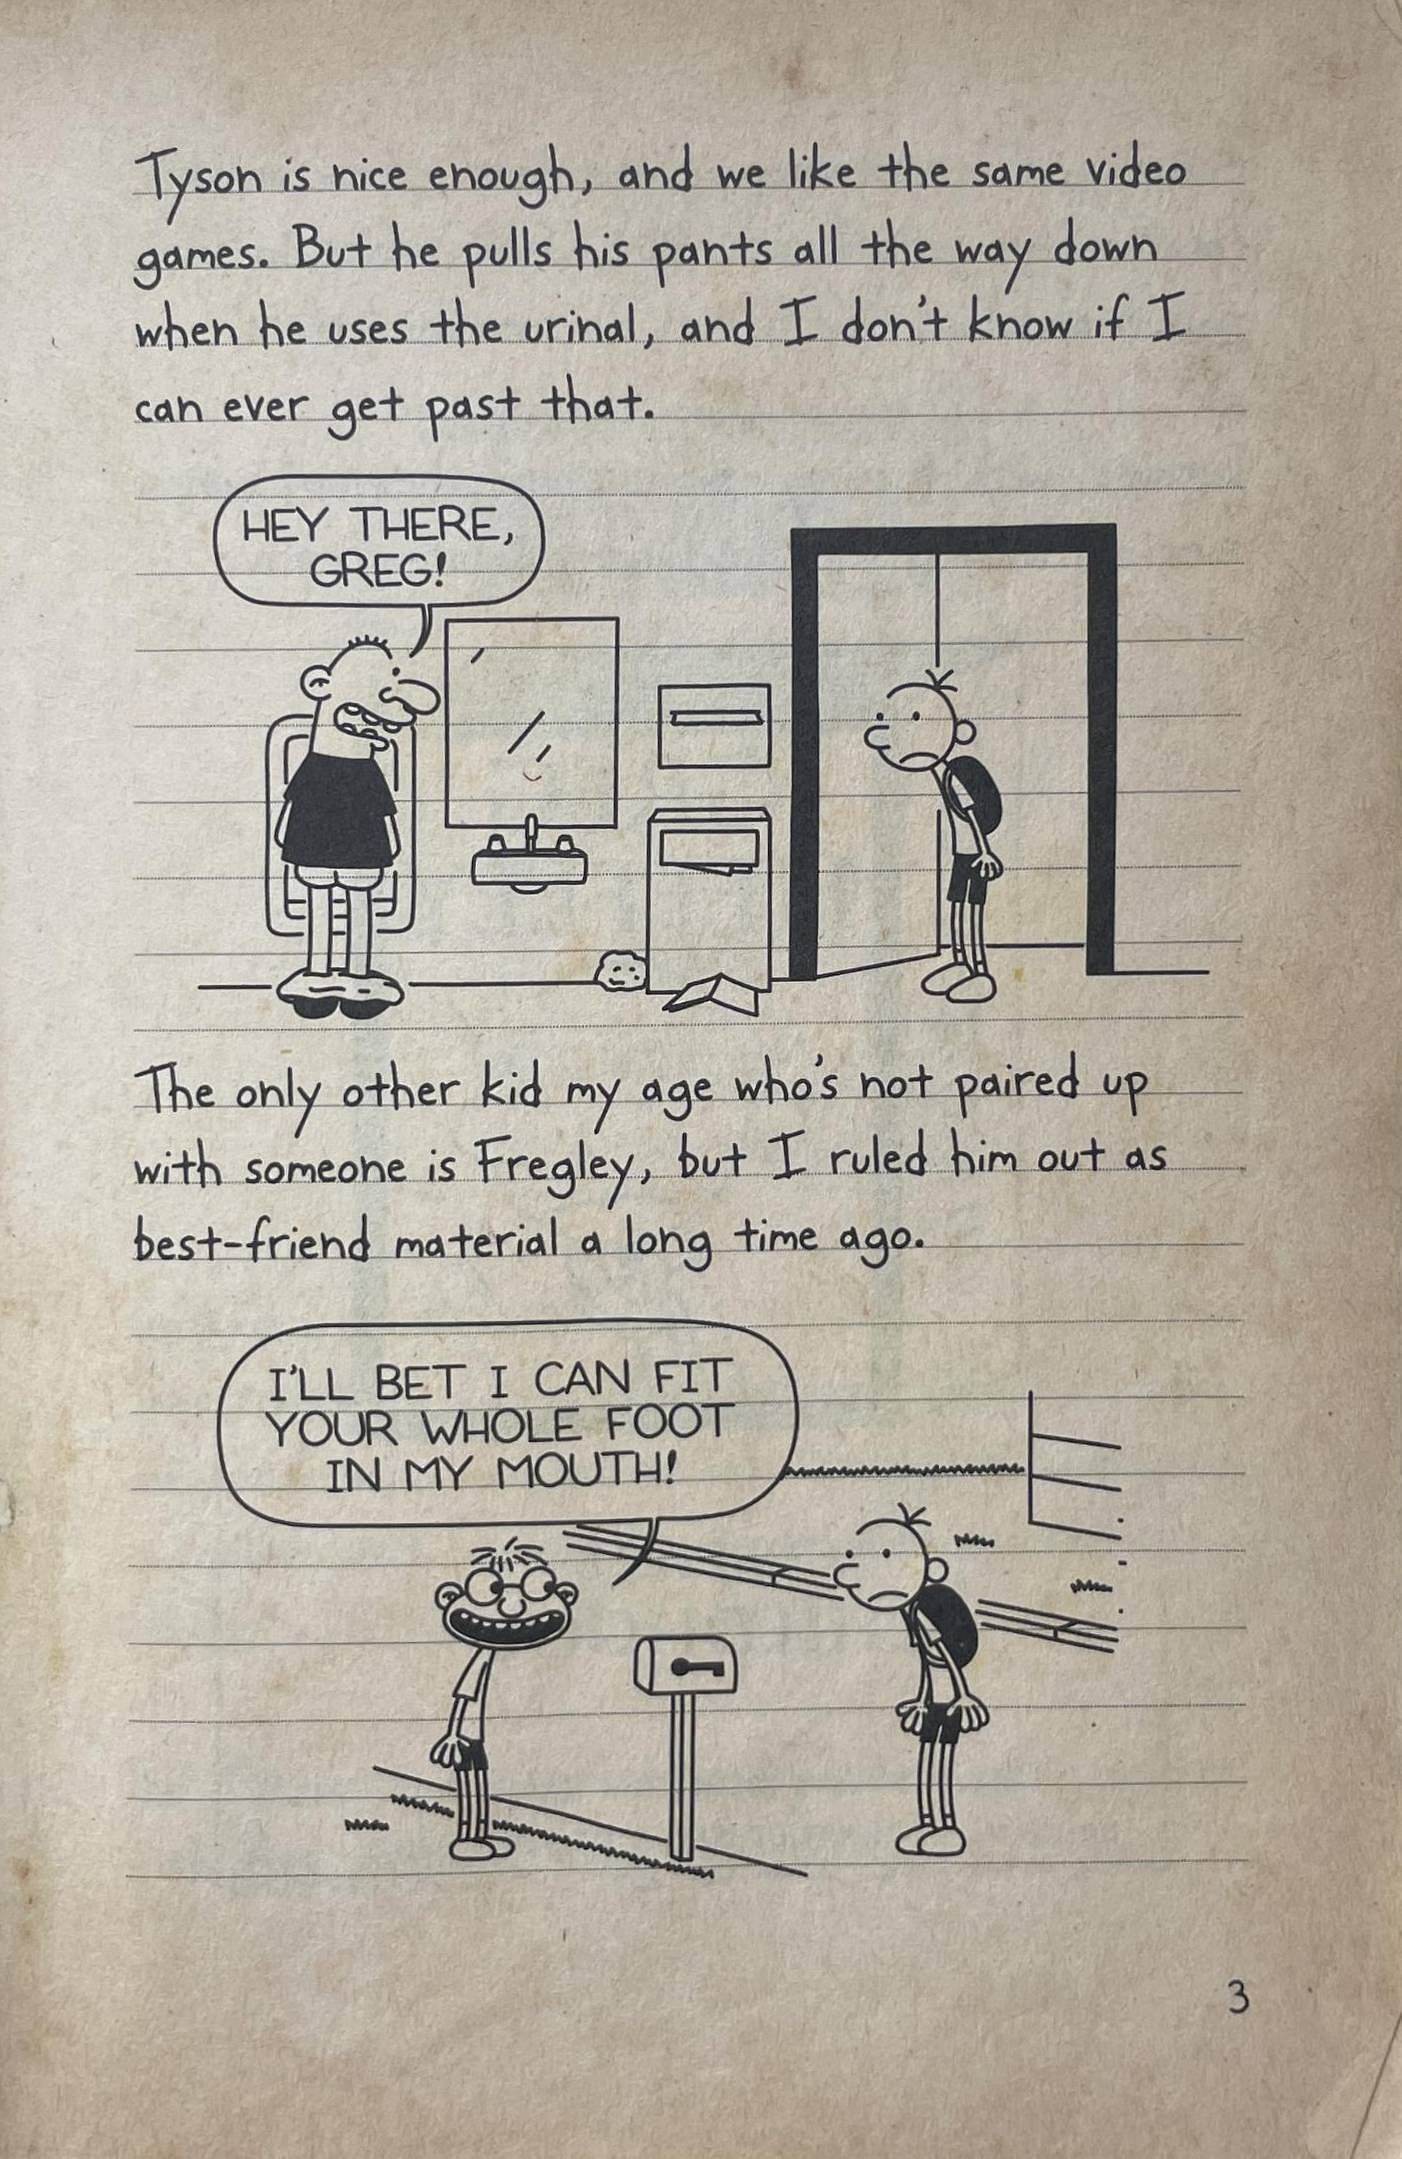 Tyson is nice enough, and we like the same video
games. But he pulls his pants all the way down
when he uses the urinal, and I don't know if I
can ever get past that.
HEY THERE,
GREG!
The only other kid my age who's not paired up
with someone is Fregley, but I ruled him out as
best-friend material a long time ago.
I'LL BET I CAN FIT
YOUR WHOLE FOOT
IN MY MOUTH!
3